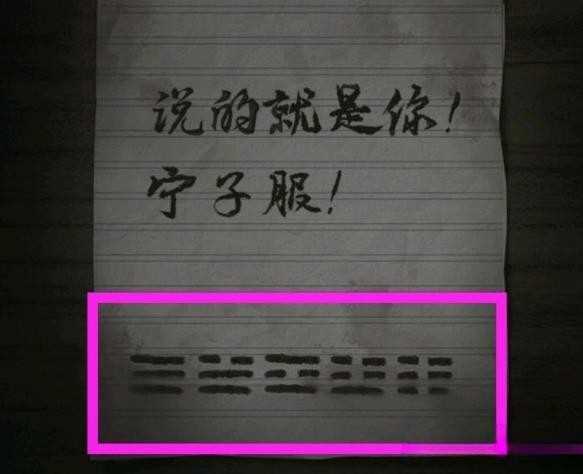 说的就是你！
宁子服！
☰☱☲☳☷